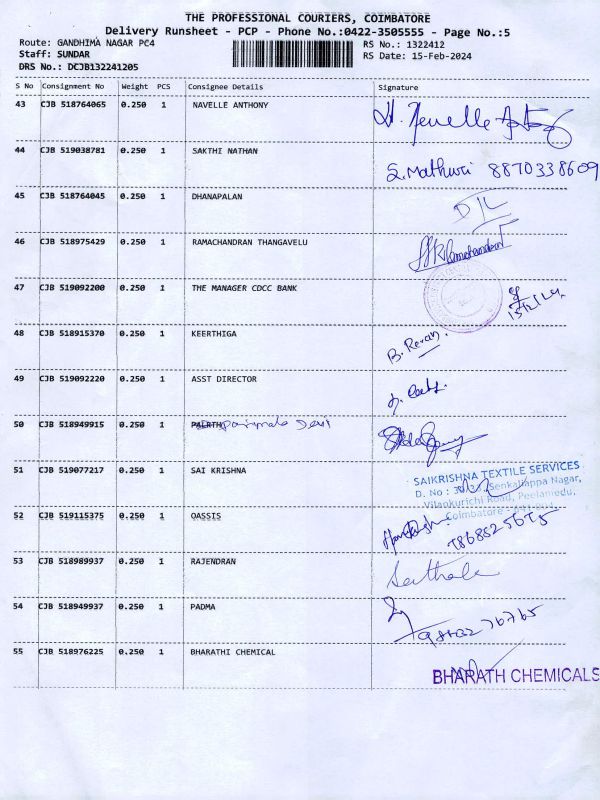 THE PROFESSIONAL COURIERS, COIMBATORE
Delivery Runsheet - PCP - Phone No.:0422-3505555 - Page No.:5
Route: GANDHIMA NAGAR PC4
RS No.: 1322412
Staff: SUNDAR
RS Date: 15-Feb-2024
DRS No.: DCJB132241205
S No Consignment No Weight PCS Consignee Details Signature
43 CJB 518764065 0.250 1 NAVELLE ANTHONY
44 CJB 519038781 0.250 1 SAKTHI NATHAN
S. Mathuri 8870338609
45 CJB 518764045 0.250 1 DHANAPALAN
46 CJB 518975429 0.250 1 RAMACHANDRAN THANGAVELU
47 CJB 519092200 0.250 1 THE MANAGER CDCC BANK
48 CJB 518915370 0.250 1 KEERTHIGA
49 CJB 519092220 0.250 1 ASST DIRECTOR
50 CJB 518949915 0.250 1
51 CJB 519077217 0.250 1 SAI KRISHNA
SAIKRISHNA TEXTILE SERVICES
Senkaliappa Nagar,
Vilankurichi Road, Peelamedu,
Coimbatore
52 CJB 519115375 0.250 1 OASSIS
53 CJB 518989937 0.250 1 RAJENDRAN
54 CJB 518949937 0.250 1 PADMA
55 CJB 518976225 0.250 1 BHARATHI CHEMICAL
BHARATH CHEMICALS